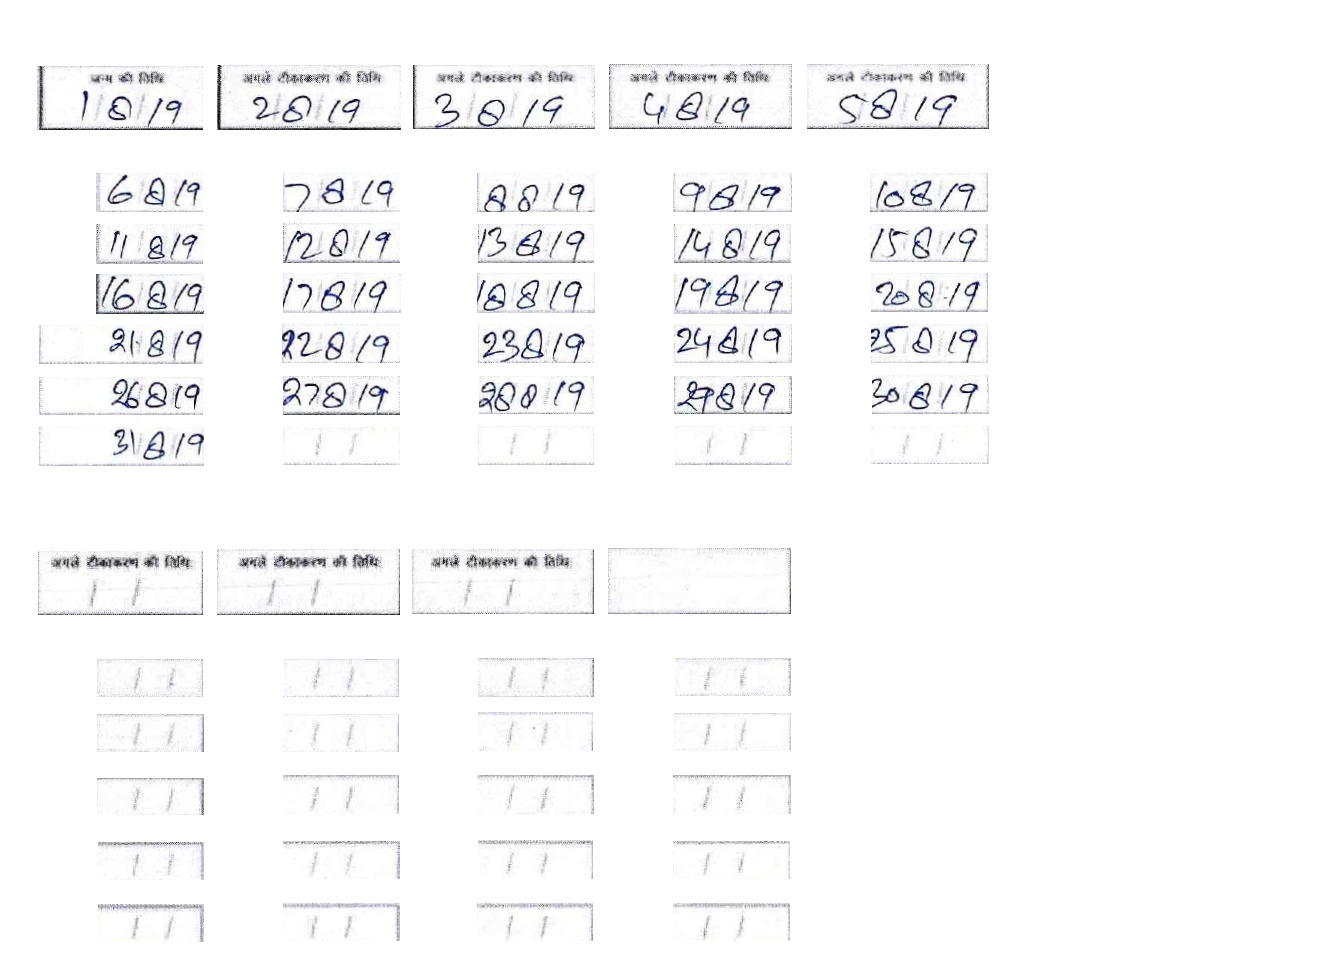 जन्म की तिथि अगले टीकाकरण की तिथि अगले टीकाकरण की तिथि अगले टीकाकरण की तिथि अगले टीकाकरण की तिथि
1/8/19 2/8/19 3/8/19 4/8/19 5/8/19
6/8/19 7/8/19 8/8/19 9/8/19 10/8/19
11/8/19 12/8/19 13/8/19 14/8/19 15/8/19
16/8/19 17/8/19 18/8/19 19/8/19 20/8/19
21/8/19 22/8/19 23/8/19 24/8/19 25/8/19
26/8/19 27/8/19 28/8/19 29/8/19 30/8/19
31/8/19 / / / / / / / /
अगले टीकाकरण की तिथि अगले टीकाकरण की तिथि अगले टीकाकरण की तिथि
/ / / / / /
/ / / / / / / /
/ / / / / / / /
/ / / / / / / /
/ / / / / / / /
/ / / / / / / /